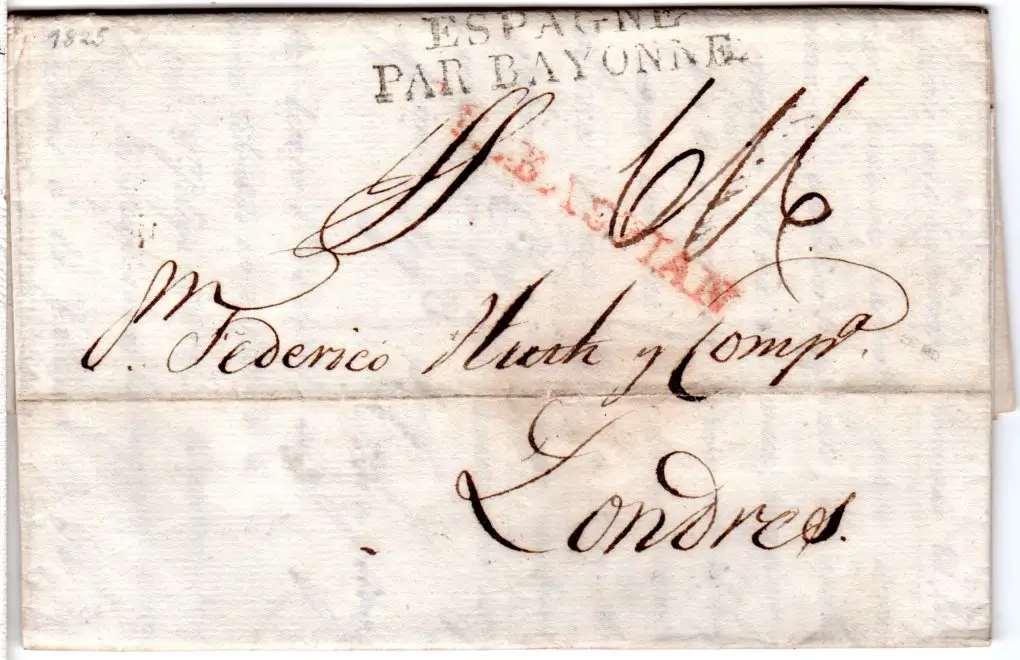 1825
ESPAGNE
PAR BAYONNE
S.SEBASTIAN
Federico Huth y Compª.
Londres.